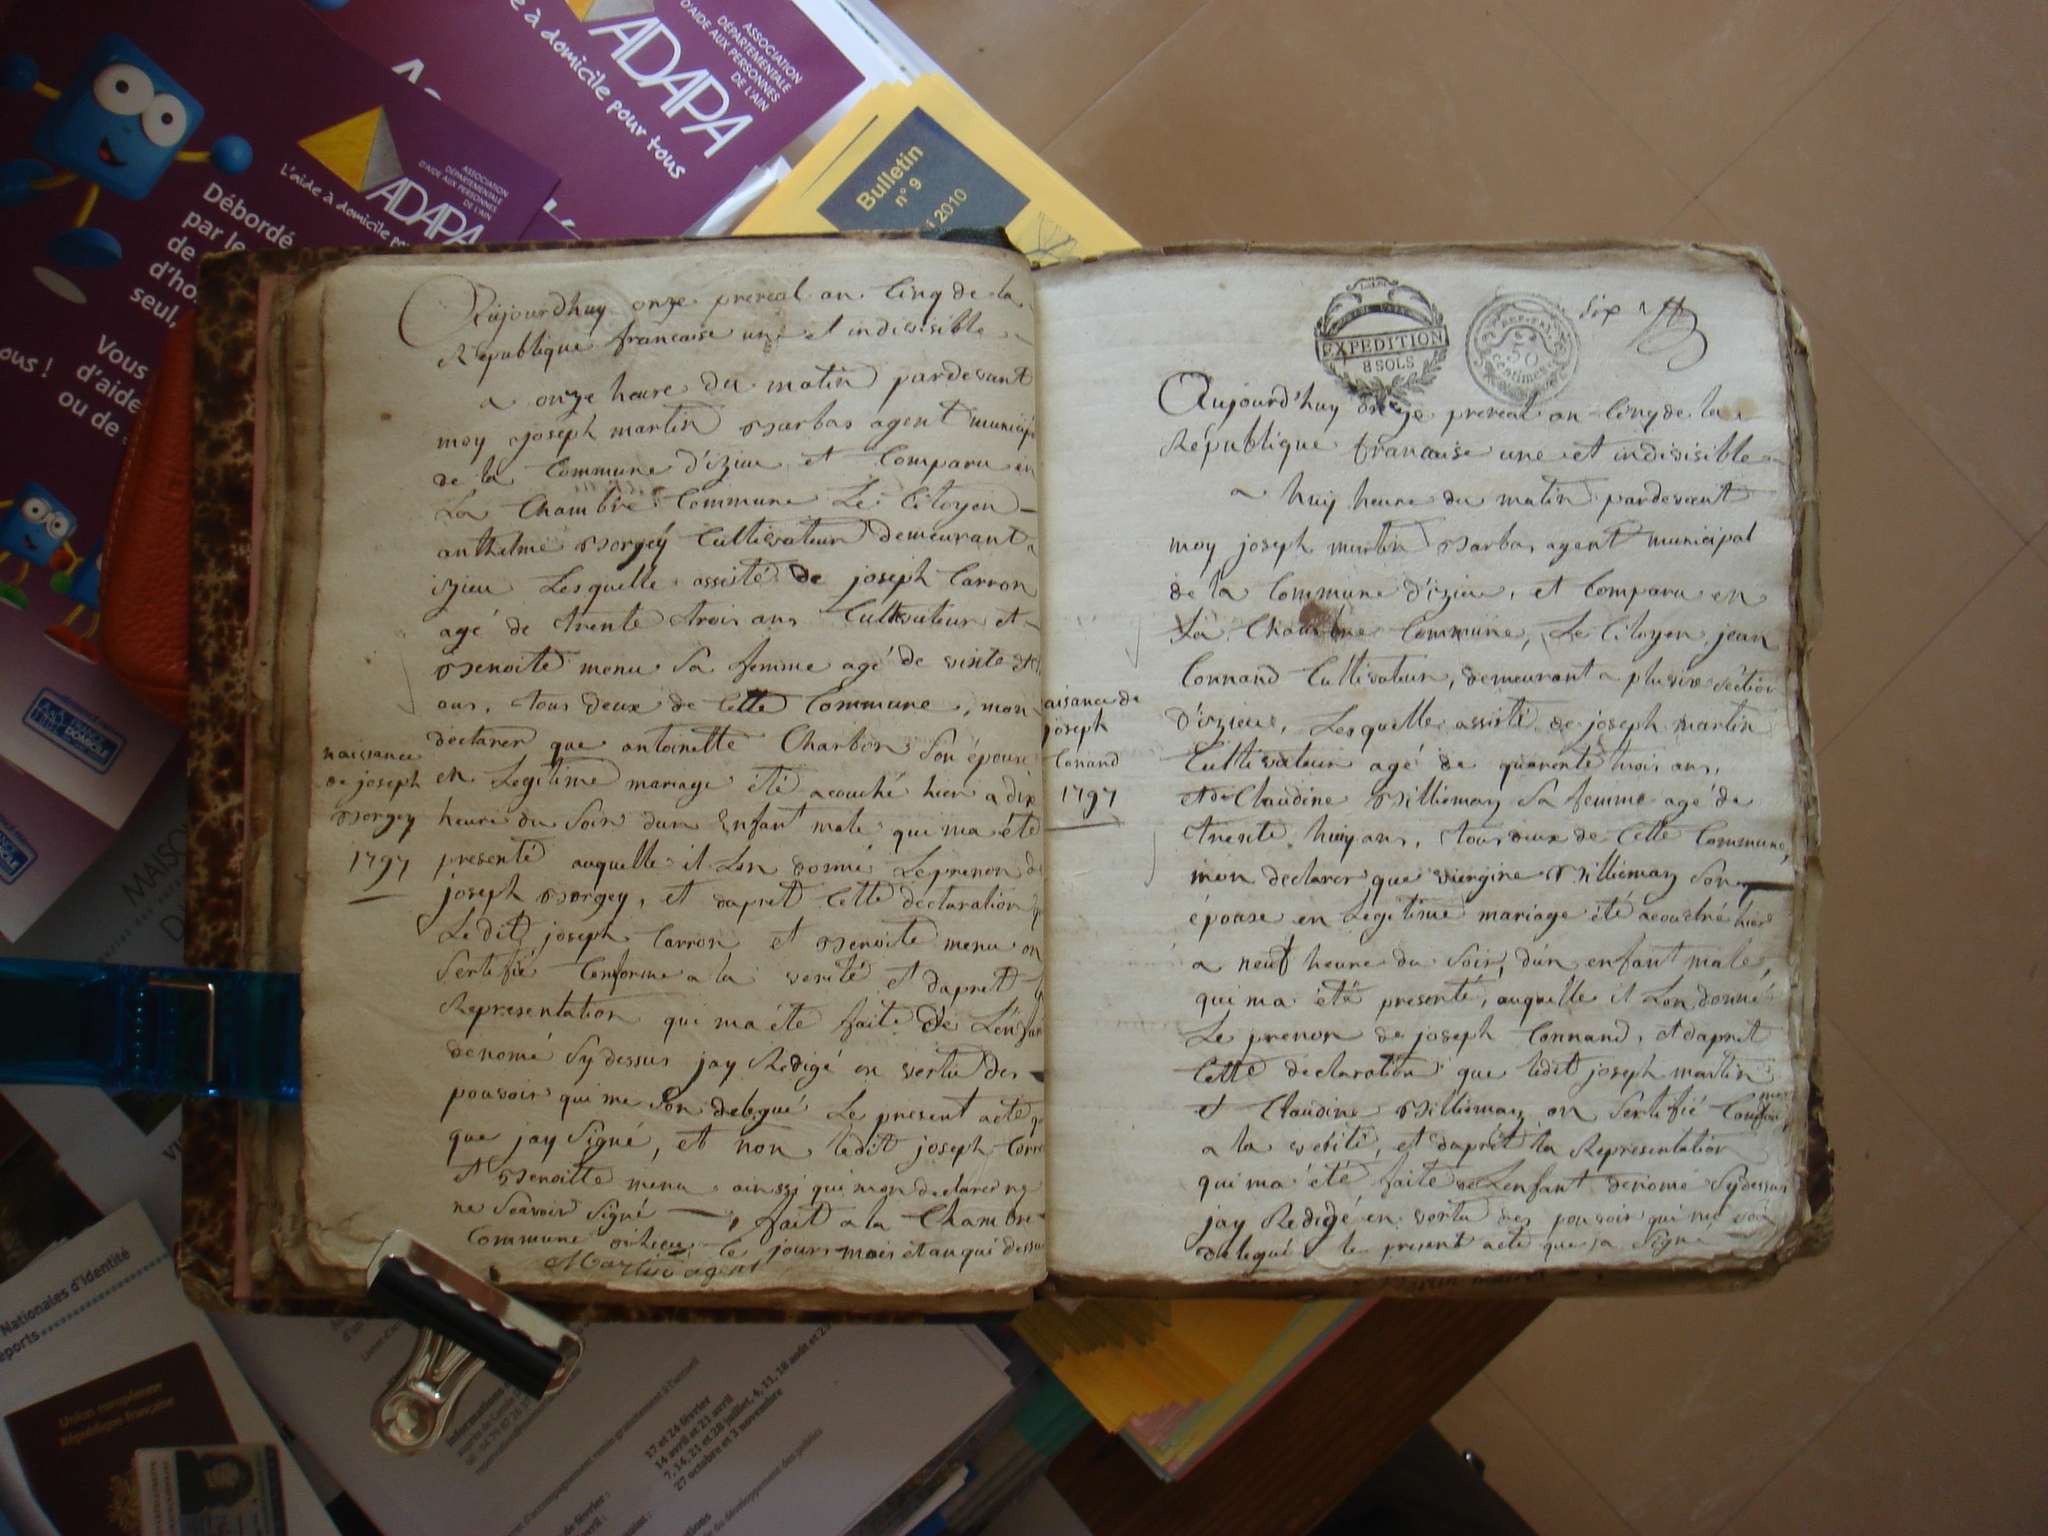 ASSOCIATION
DÉPARTEMENTALE
D'AIDE AUX PERSONNES
DE L'AIN
ADAPA
e à domicile pour tous
ASSOCIATION
DÉPARTEMENTALE
D'AIDE AUX PERSONNES
DE L'AIN
ADAPA
L'aide à domicile po
Débordé
par le
de
d'ho
seul,
Vous
d'aide
ou de
ous !
Bulletin
n° 9
i 2010
Aujourdhuy onze prereal an Cinq de la
République francaise une et indivisible
a onze heure du matin pardevant
moy joseph martin Barbas agent municip
de la Commune d'izieu et Comparu en
La Chambre Commune Le Citoyen
anthelme Borgey Cultivateur demeurant
izieu Lesquelle assisté de joseph Carron
agé de trente trois ans Cultivateur et
Benoite menu Sa femme agé de vinte
ans, tous deux de Cette Commune, mon
declarer que antoinette Charbon Son épouse
en Legitime mariage été acouché hier a dix
heure du Soir dun Enfant male qui ma été
presenté auquelle il Lon donné Le prenon de
joseph Borgey, et dapret Cette declaration
Ledit joseph Carron et Benoite menu on
Sertifié Conforme a la verité et dapret
Representation qui ma été faite de L'enfan
denomé Sydessus jay Redigé en vertu des
pouvoir qui me Son delegué Le present acte
que jay Signé, et non ledit joseph Carr
et Benoitte menu ainssi qui mon declarer
ne Scavoir Signé fait a la Chambre
Commune le jours mois et an qui dessu
Martin agent
naissance
de joseph
Borgey
1797
EXPEDITION
8 SOLS
50
Centimes
Six
Aujourd'huy onze prereal an Cinq de la
République francaise une et indivisible
a huy heure du matin pardevant
moy joseph martin Barbas agent municipal
de la Commune d'izieu, et Comparu en
La Chambre Commune, Le Citoyen jean
Connand Cultivateur, demeurant a section
D'izieu, Lesquelle assisté de joseph martin
Cultivateur agé de quarente trois ans,
et de Claudine Billiemaz Sa femme agé de
trente huy ans, tous deux de Cette Commune,
mon declarer que virgine Billiemaz Son
épouse en Legitime mariage été acouché hier
a neuf heure du Soir, d'un enfant male,
qui ma été presenté, auquelle il Lon donné
Le prenon de joseph Connand, et dapret
Cette declaration que ledit joseph martin
et Claudine Billiemaz on Sertifié Conforme
a la verité, et dapret la Representation
qui ma été faite de Lenfant denomé Sydessus
jay Redigé en vertu des pouvoir qui me son
delegué le present acte que ja Signé
aisance de
joseph
Conand
1797
MAISO
Nationales d'identité
eports
Union européenne
République française
Informations
17 et 24 février
14 avril et 21 avril
7, 14, 21 et 28 juillet, 4, 11, 18 août et 2
27 octobre et 3 novembre